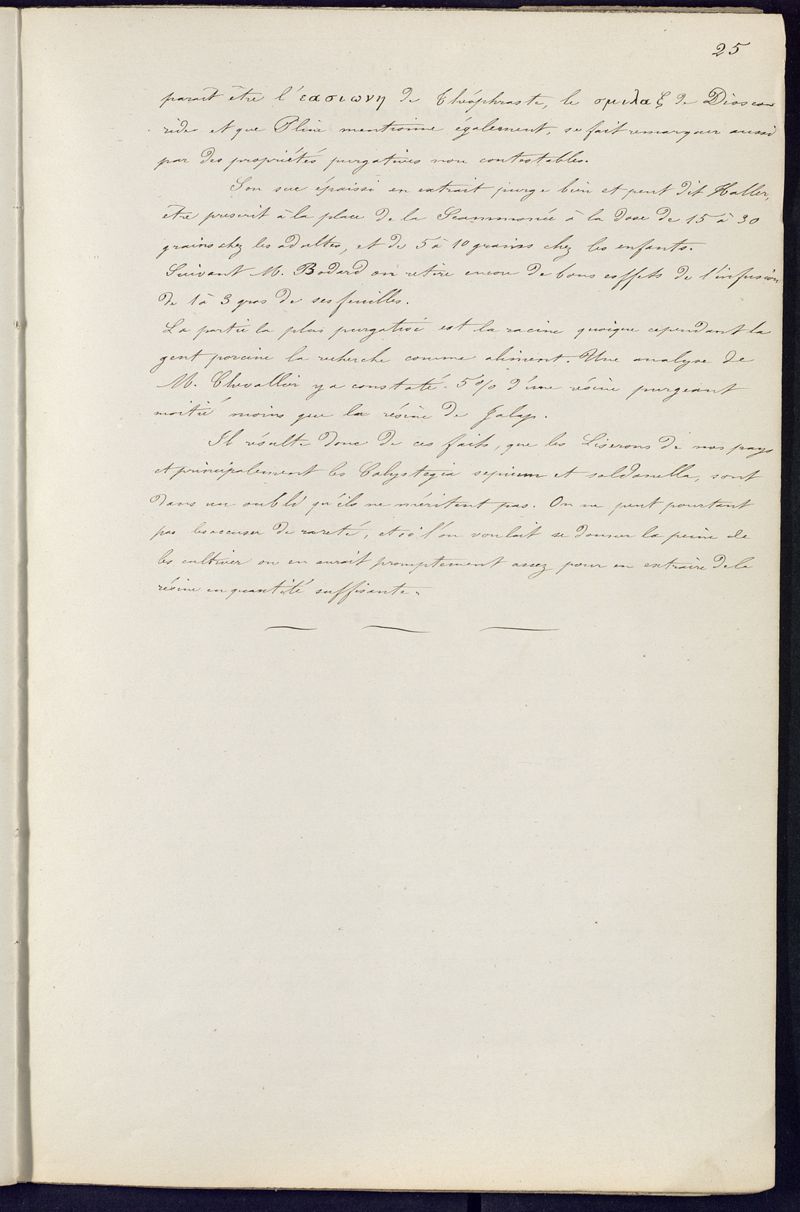 25
parait être l'εασιωνη de Théophraste, le σμιλαξ de Dioscou
ride et que Pline mentionne également, se fait remarquer aussi
par des propriétés purgatives non contestables.
Son suc épaissi en extrait purge bien et peut dit Haller,
être prescrit à la place de la Scammonée à la dose de 15 à 30
grains chez les adultes, et de 5 à 10 grains chez les enfants.
Suivant M. Bodard on retire encore de bons effets de l'infusion
de 1 à 3 gros de ses feuilles.
La partie la plus purgative est la racine quoique cependant la
gent porcine la recherche comme aliment. Une analyse de
M. Chevallier y a constaté 5 % d'une résine purgeant
moitié moins que la résine de Jalap.
Il résulte donc de ces faits, que les Liserons de nos pays
et principalement les Calystegia sepium et soldanella, sont
dans un oubli qu'ils ne méritent pas. On ne peut pourtant
pas les accuser de rareté, et si l'on voulait se donner la peine de
les cultiver on en aurait promptement assez pour en extraire de la
résine en quantité suffisante.